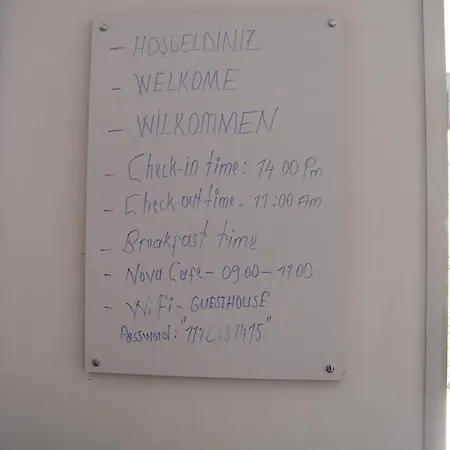 - HOŞGELDİNİZ
- WELKOME
- WİLKOMMEN
- Check-in time: 14 00 Pm
- Check out time. 11:00 Am
- Breakfast time
- Nova Cafe - 09.00 - 11.00
- WiFi - GUESTHOUSE
Password: